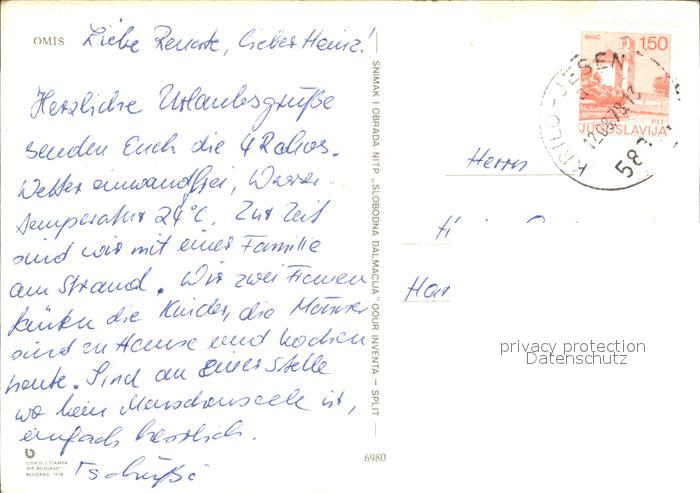 OMIS
Liebe Renate, lieber Heinz!
Herzliche Urlaubsgrüße
senden Euch die 4
Wetter einwandfrei, Wasser-
temperatur 24°C. Zur Zeit
sind wir mit einer Familie
am Strand. Wir zwei Frauen
hüten die Kinder, die Männer
sind zu Hause und kochen
heute. Sind an einer Stelle
wo keine Menschenseele ist,
einfach herrlich.
Tschüß
IZDAJE I ŠTAMPA
GIP „BEOGRAD"
BEOGRAD 1978
6980
SNIMAK I OBRADA NITP „SLOBODNA DALMACIJA" OOUR INVENTA — SPLIT —
BIHAĆ
1,50
PTT
JUGOSLAVIJA
KRILO-JESEN
12.08.78.13
58
Herrn
H
Har
privacy protection
Datenschutz